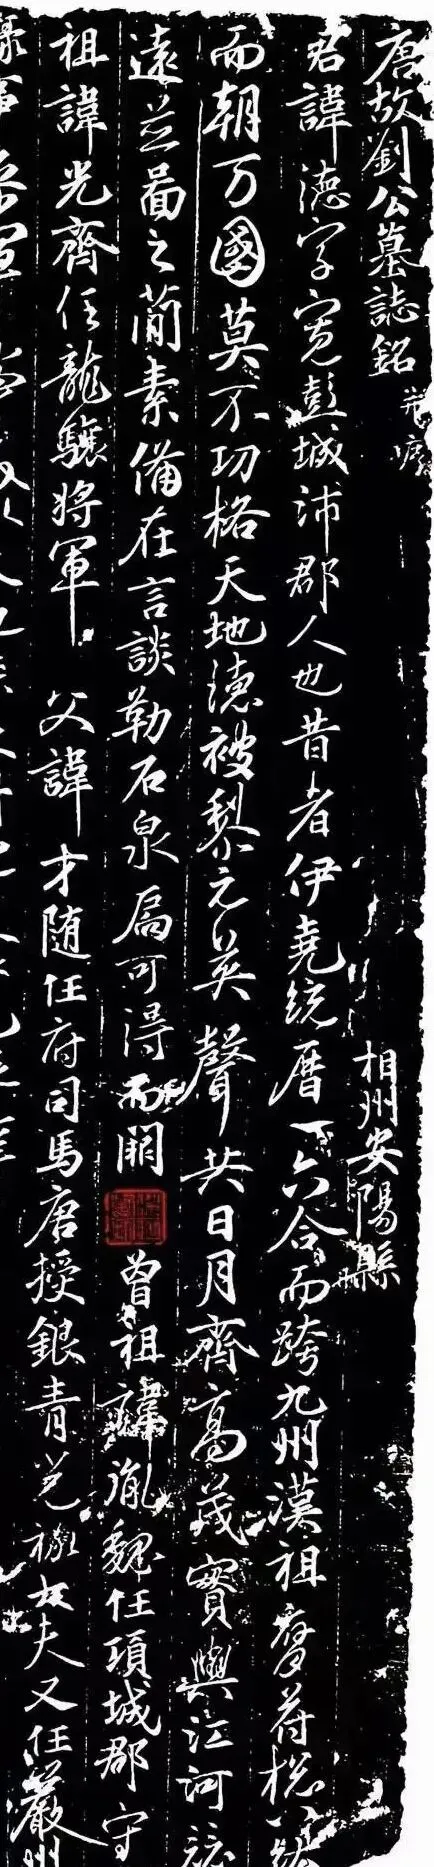 唐故劉公墓誌銘 相州安陽縣
君諱德字寬彭城沛郡人也昔者伊堯統曆一六合而跨九州漢祖膺苻㧾八紘
而朝万國莫不功格天地德被黎元英聲共日月齊高茂實與江河
遠並啚之蕳素備在言談勒石泉扃可得而闕 曾祖諱胤魏任項城郡守
祖諱光齊任龍驤將軍 父諱才随任府司馬唐授銀青光祿大夫又任嚴州